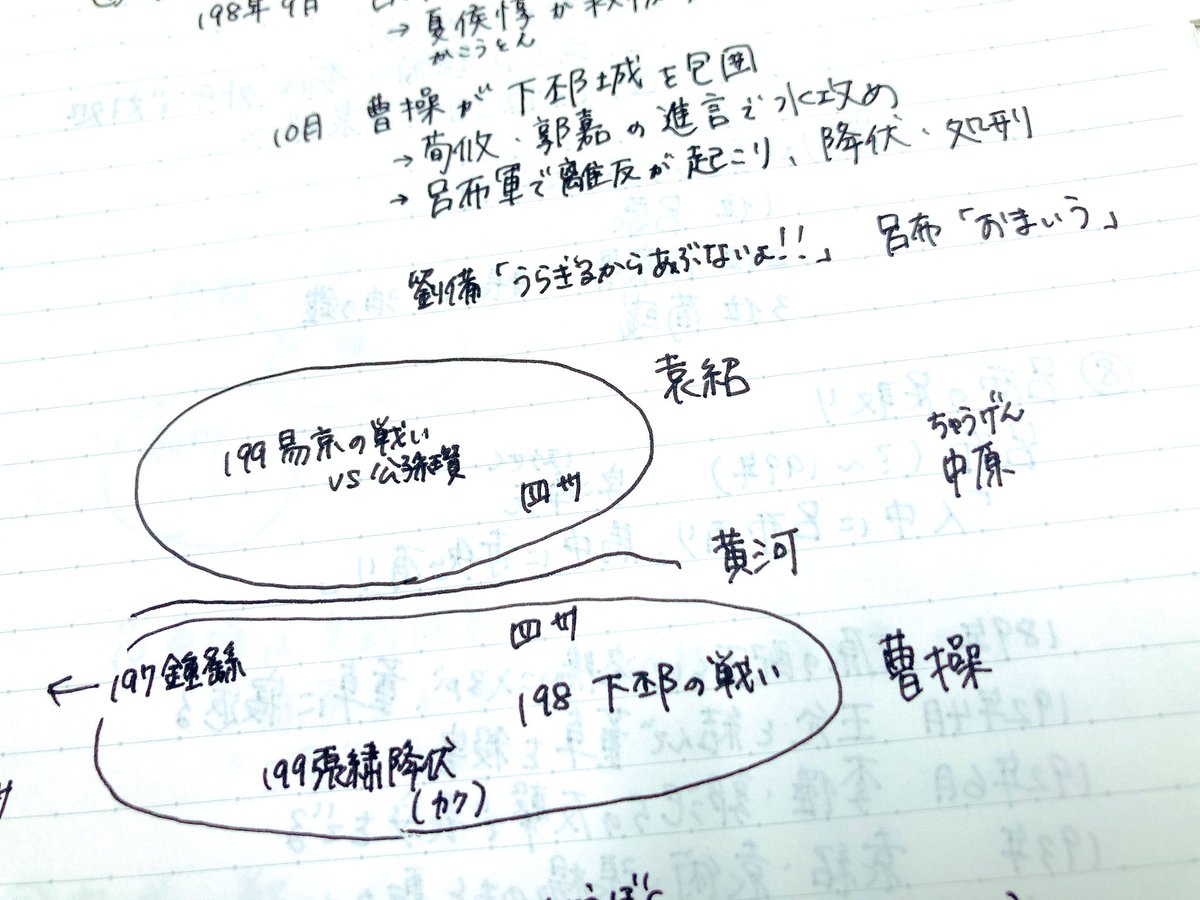 198年9月
→ 夏侯惇が
かこうとん
10月 曹操が下邳城を包囲
→ 荀攸・郭嘉の進言で水攻め
→ 呂布軍で離反が起こり、降伏・処刑
劉備「うらぎるからあぶないよ!!」 呂布「おまいう」
袁紹
199 易京の戦い
VS 公孫瓚
四州
ちゅうげん
中原
黄河
四州
曹操
← 197 鍾繇
198 下邳の戦い
199 張繡降伏
(カク)